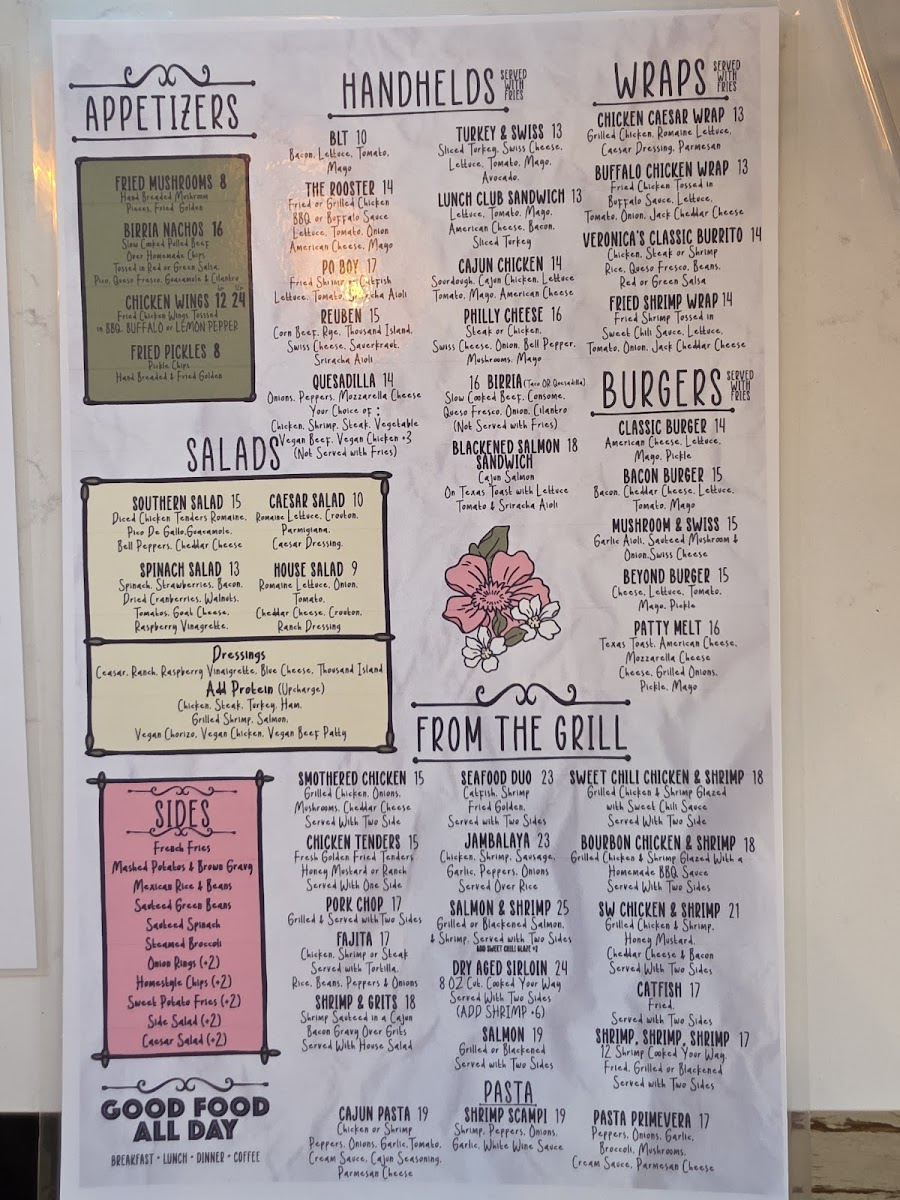 APPETIZERS
FRIED MUSHROOMS 8
Hand Breaded Mushroom
Pieces, Fried Golden
BIRRIA NACHOS 16
Slow Cooked Pulled Beef
Over Homemade Chips
Tossed in Red or Green Salsa,
Pico, Queso Fresco, Guacamole & Cilantro
CHICKEN WINGS 12 24
Fried Chicken Wings Tossed
in BBQ, BUFFALO or LEMON PEPPER
FRIED PICKLES 8
Pickle Chips
Hand Breaded & Fried Golden
HANDHELDS SERVED WITH FRIES
BLT 10
Bacon, Lettuce, Tomato,
Mayo
THE ROOSTER 14
Fried or Grilled Chicken
BBQ or Buffalo Sauce
Lettuce, Tomato, Onion
American Cheese, Mayo
PO BOY 17
Fried Shrimp Catfish
Lettuce, Tomato, Sriracha Aioli
REUBEN 15
Corn Beef, Rye, Thousand Island,
Swiss Cheese, Sauerkraut,
Sriracha Aioli
QUESADILLA 14
Onions, Peppers, Mozzarella Cheese
Your Choice of :
Chicken, Shrimp, Steak, Vegetable
Vegan Beef, Vegan Chicken +3
(Not Served with Fries)
TURKEY & SWISS 13
Sliced Turkey, Swiss Cheese,
Lettuce, Tomato, Mayo,
Avocado.
LUNCH CLUB SANDWICH 13
Lettuce, Tomato, Mayo,
American Cheese, Bacon,
Sliced Turkey
CAJUN CHICKEN 14
Sourdough, Cajun Chicken, Lettuce
Tomato, Mayo, American Cheese
PHILLY CHEESE 16
Steak or Chicken,
Swiss Cheese, Onion, Bell Pepper,
Mushrooms, Mayo
16 BIRRIA (Taco OR Quesadilla)
Slow Cooked Beef, Consome,
Queso Fresco, Onion, Cilantro
(Not Served with Fries)
BLACKENED SALMON 18
SANDWICH
Cajun Salmon
On Texas Toast with Lettuce
Tomato & Sriracha Aioli
WRAPS SERVED WITH FRIES
CHICKEN CAESAR WRAP 13
Grilled Chicken, Romaine Lettuce,
Caesar Dressing, Parmesan
BUFFALO CHICKEN WRAP 13
Fried Chicken Tossed in
Buffalo Sauce, Lettuce,
Tomato, Onion, Jack Cheddar Cheese
VERONICA'S CLASSIC BURRITO 14
Chicken, Steak or Shrimp
Rice, Queso Fresco, Beans,
Red or Green Salsa
FRIED SHRIMP WRAP 14
Fried Shrimp Tossed in
Sweet Chili Sauce, Lettuce,
Tomato, Onion, Jack Cheddar Cheese
BURGERS SERVED WITH FRIES
CLASSIC BURGER 14
American Cheese, Lettuce,
Mayo, Pickle
BACON BURGER 15
Bacon, Cheddar Cheese, Lettuce,
Tomato, Mayo
MUSHROOM & SWISS 15
Garlic Aioli, Sauteed Mushroom &
Onion,Swiss Cheese
BEYOND BURGER 15
Cheese, Lettuce, Tomato,
Mayo, Pickle
PATTY MELT 16
Texas Toast, American Cheese,
Mozzarella Cheese
Cheese, Grilled Onions,
Pickle, Mayo
SALADS
SOUTHERN SALAD 15
Diced Chicken Tenders Romaine,
Pico De Gallo,Guacamole,
Bell Peppers, Cheddar Cheese
CAESAR SALAD 10
Romaine Lettuce, Crouton,
Parmigiana,
Caesar Dressing.
SPINACH SALAD 13
Spinach, Strawberries, Bacon,
Dried Cranberries, Walnuts,
Tomatos, Goat Cheese,
Raspberry Vinagrette.
HOUSE SALAD 9
Romaine Lettuce, Onion,
Tomato,
Cheddar Cheese, Crouton,
Ranch Dressing
Dressings
Ceasar, Ranch, Raspberry Vinaigrette, Blue Cheese, Thousand Island
Add Protein (Upcharge)
Chicken, Steak, Turkey, Ham,
Grilled Shrimp, Salmon,
Vegan Chorizo, Vegan Chicken, Vegan Beef Patty
SIDES
French Fries
Mashed Potatos & Brown Gravy
Mexican Rice & Beans
Sauteed Green Beans
Sauteed Spinach
Steamed Broccoli
Onion Rings (+2)
Homestyle Chips (+2)
Sweet Potato Fries (+2)
Side Salad (+2)
Caesar Salad (+2)
FROM THE GRILL
SMOTHERED CHICKEN 15
Grilled Chicken, Onions,
Mushrooms, Cheddar Cheese
Served With Two Side
CHICKEN TENDERS 15
Fresh Golden Fried Tenders
Honey Mustard or Ranch
Served With One Side
PORK CHOP 17
Grilled & Served with Two Sides
FAJITA 17
Chicken, Shrimp or Steak
Served with Tortilla,
Rice, Beans, Peppers & Onions
SHRIMP & GRITS 18
Shrimp Sauteed in a Cajun
Bacon Gravy Over Grits
Served With House Salad
SEAFOOD DUO 23
Catfish, Shrimp
Fried Golden,
Served with Two Sides
JAMBALAYA 23
Chicken, Shrimp, Sausage,
Garlic, Peppers, Onions
Served Over Rice
SALMON & SHRIMP 25
Grilled or Blackened Salmon,
& Shrimp, Served with Two Sides
ADD SWEET CHILI GLAZE +2
DRY AGED SIRLOIN 24
8 OZ Cut, Cooked Your Way
Served With Two Sides
(ADD SHRIMP +6)
SALMON 19
Grilled or Blackened
Served with Two Sides
SWEET CHILI CHICKEN & SHRIMP 18
Grilled Chicken & Shrimp Glazed
with Sweet Chili Sauce
Served With Two Side
BOURBON CHICKEN & SHRIMP 18
Grilled Chicken & Shrimp Glazed With a
Homemade BBQ Sauce
Served With Two Sides
SW CHICKEN & SHRIMP 21
Grilled Chicken & Shrimp,
Honey Mustard,
Cheddar Cheese & Bacon
Served With Two Sides
CATFISH 17
Fried,
Served with Two Sides
SHRIMP, SHRIMP, SHRIMP 17
12 Shrimp Cooked Your Way,
Fried, Grilled or Blackened
Served With Two Sides
PASTA
CAJUN PASTA 19
Chicken or Shrimp
Peppers, Onions, Garlic,Tomato,
Cream Sauce, Cajun Seasoning,
Parmesan Cheese
SHRIMP SCAMPI 19
Shrimp, Peppers, Onions,
Garlic, White Wine Sauce
PASTA PRIMEVERA 17
Peppers, Onions, Garlic,
Broccoli, Mushrooms,
Cream Sauce, Parmesan Cheese
GOOD FOOD
ALL DAY
BREAKFAST • LUNCH • DINNER • COFFEE